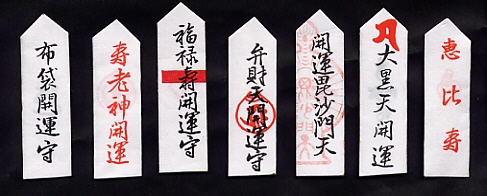 布袋開運守
寿老神開運
福禄寿開運守
弁財天開運守
開運毘沙門天
大黒天開運
恵比寿